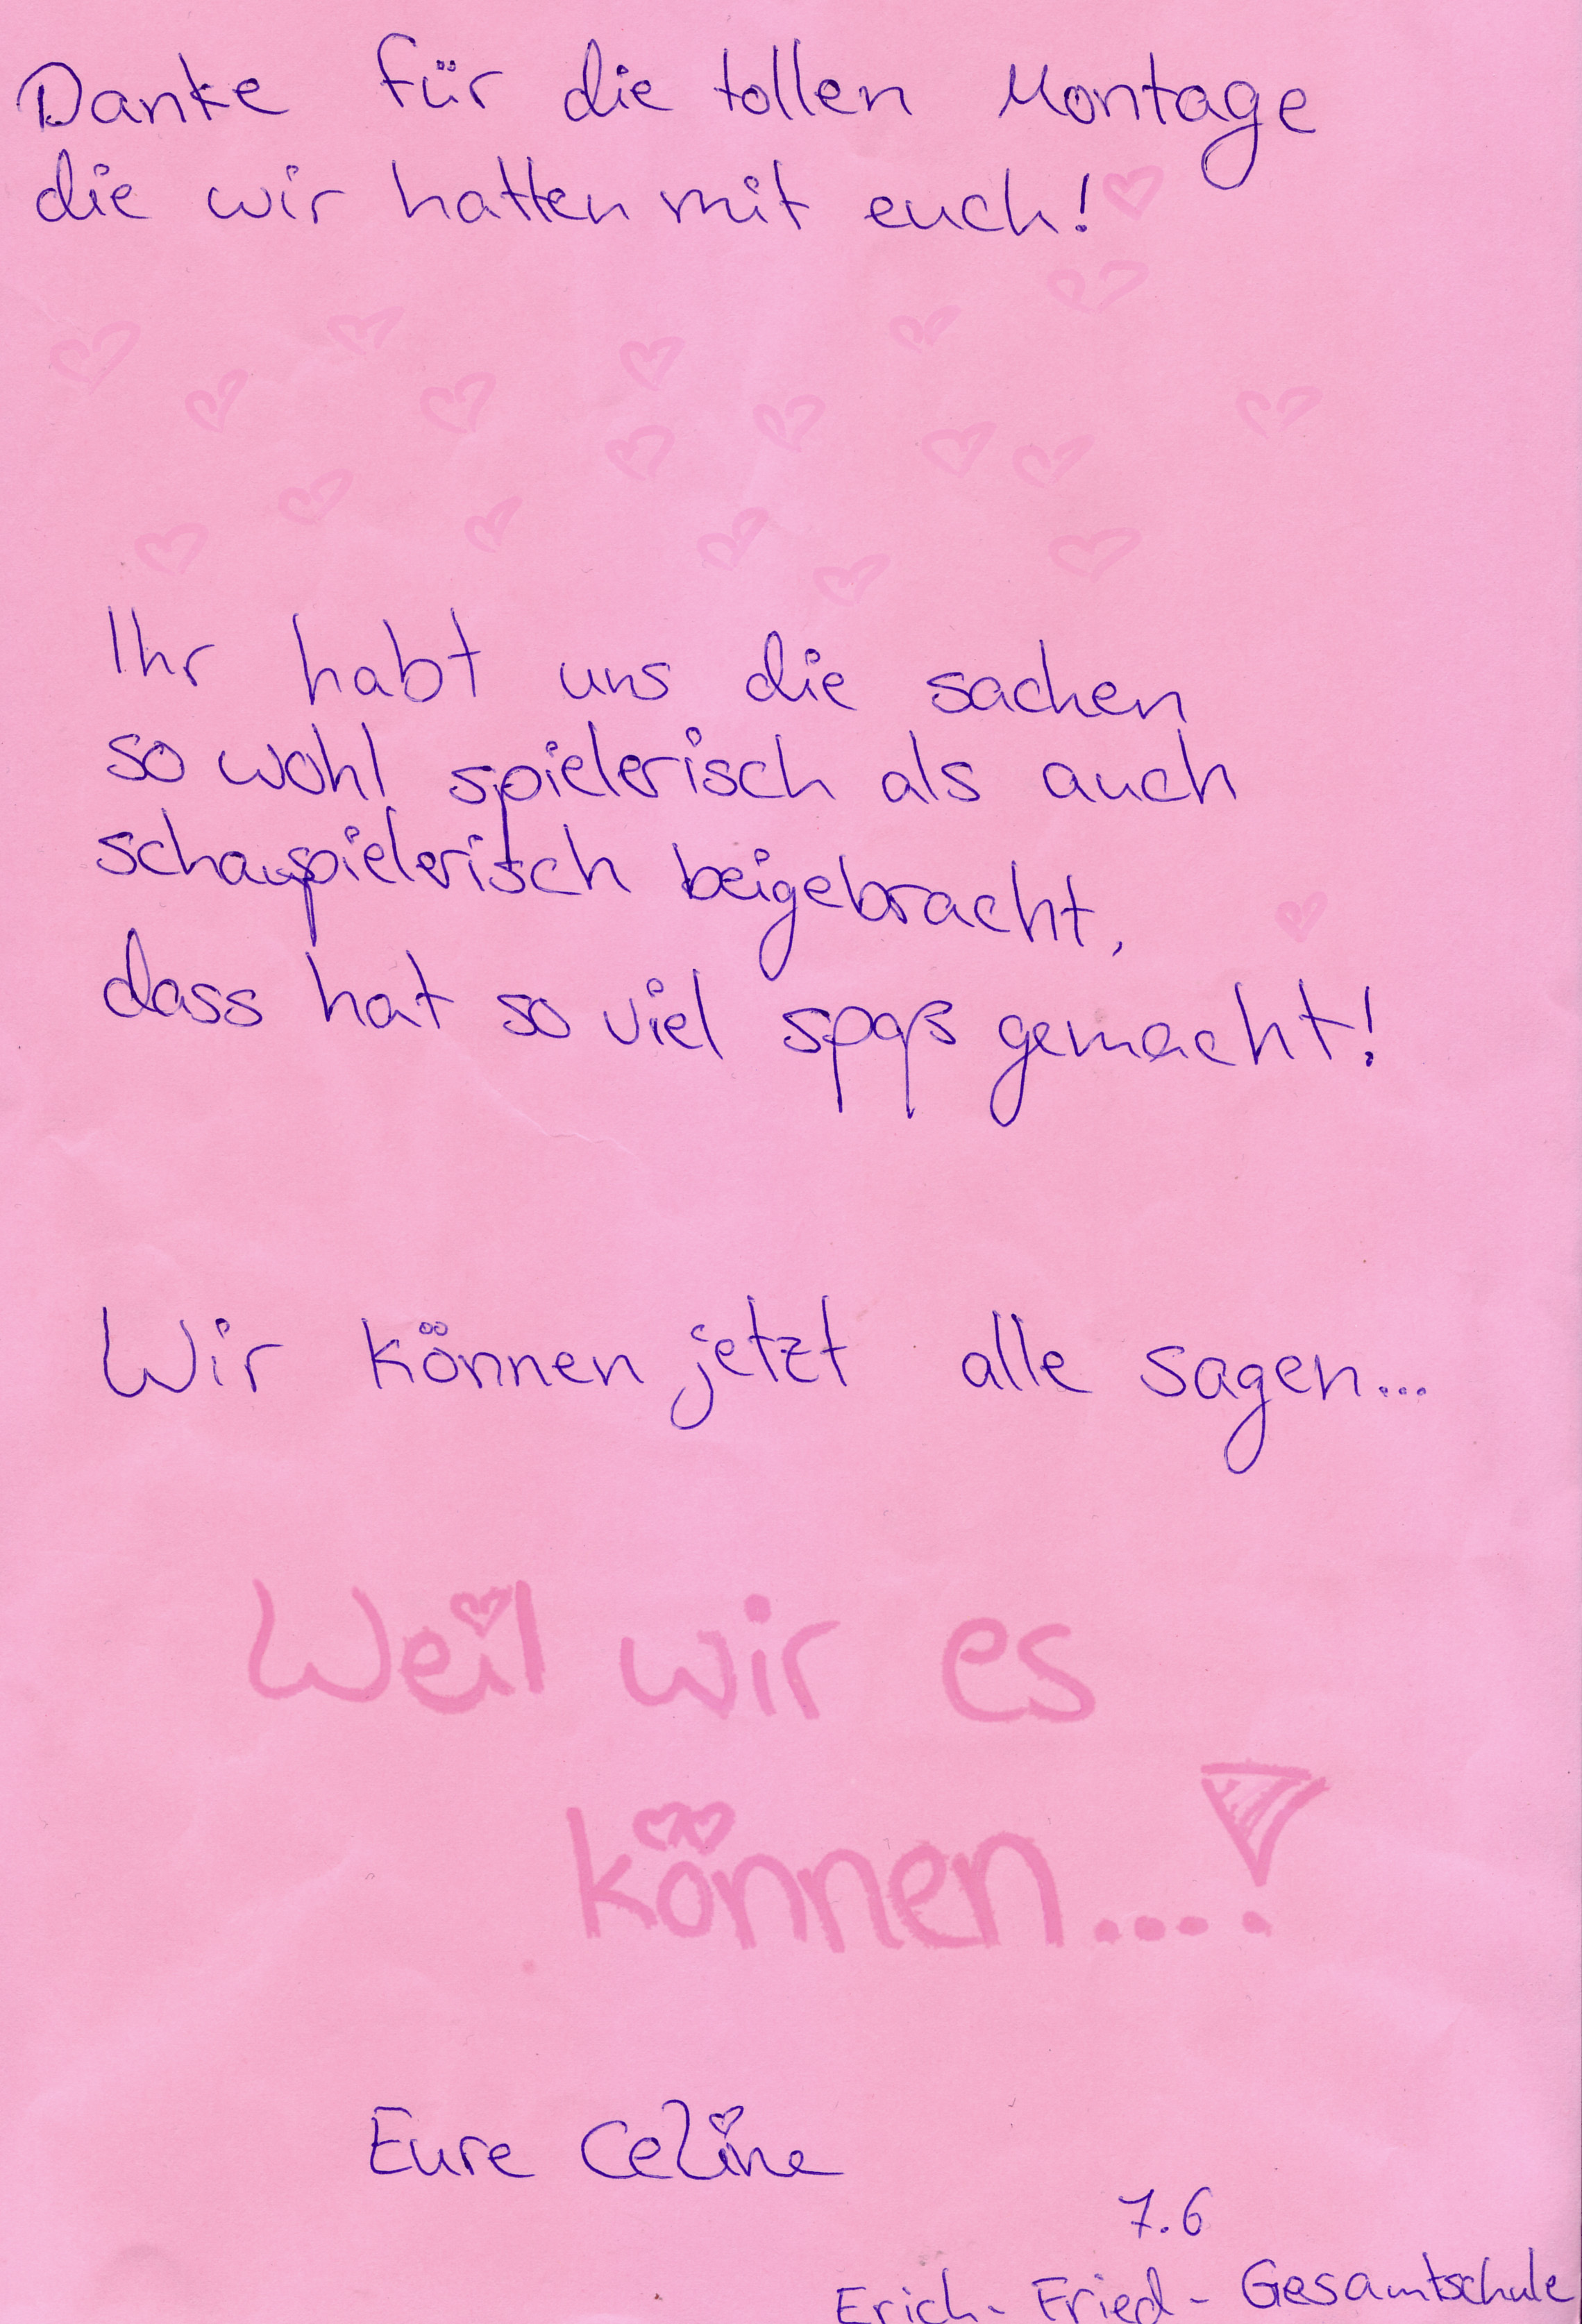 Danke für die tollen Montage
die wir hatten mit euch!
Ihr habt uns die sachen
so wohl spielerisch als auch
schauspielerisch beigebracht,
dass hat so viel spaß gemacht!
Wir können jetzt alle sagen...
Weil wir es
können....!
Eure Celine
7.6
Erich-Fried-Gesamtschule